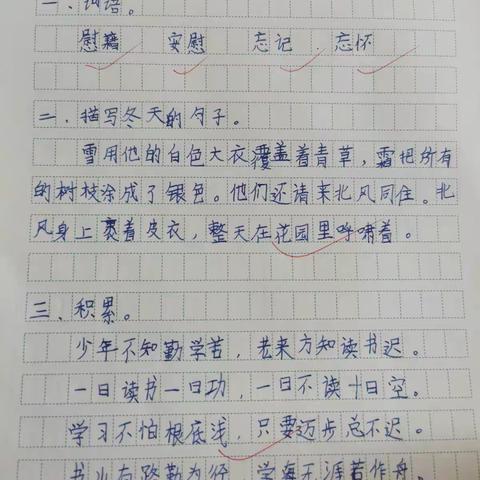 一、词语。
慰藉 安慰 忘记 忘怀
二、描写冬天的句子。
雪用他的白色大衣覆盖着青草，霜把所有
的树枝涂成了银色。他们还请来北风同住。北
风身上裹着皮衣，整天在花园里呼啸着。
三、积累。
少年不知勤学苦，老来方知读书迟。
一日读书一日功，一日不读十日空。
学习不怕根底浅，只要迈步总不迟。
书山有路勤为径，学海无涯苦作舟。